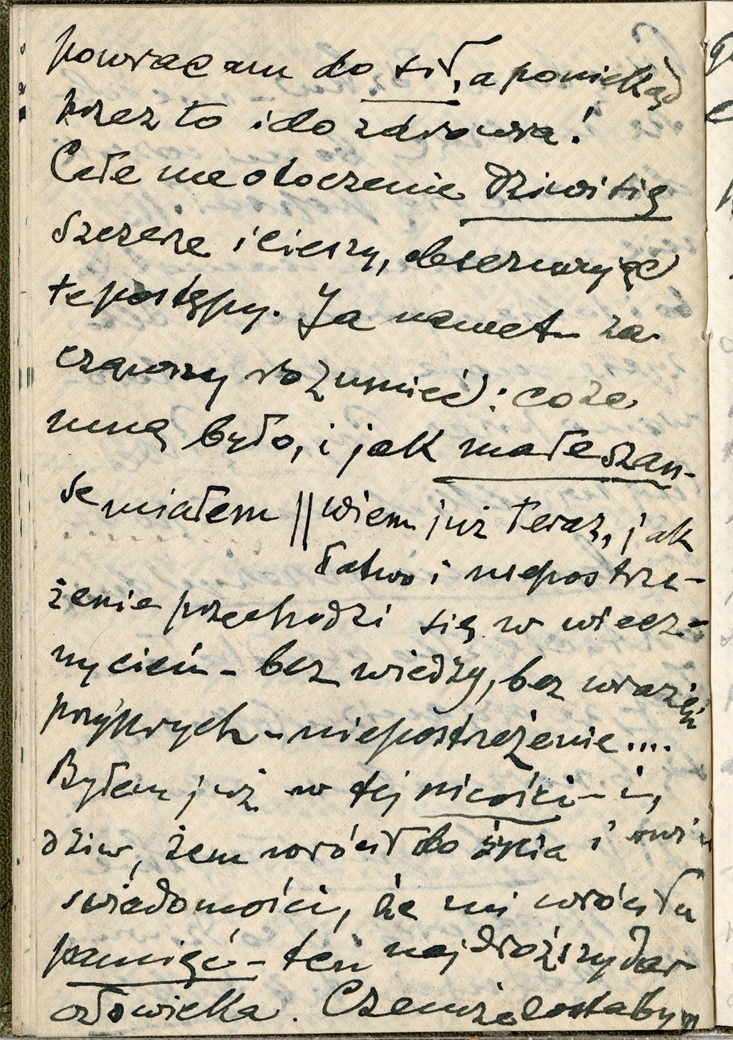 powracam do sił, a poniekąd
przez to i do zdrowia!
Całe me otoczenie dziwi się
szczerze i cieszy, obserwując
te postępy. Ja nawet za-
czynam rozumieć: co ze
mną było, i jak małe szan-
se miałem || wiem już teraz, jak
łatwo i niepostrze-
żenie przechodzi się w wiecz-
ny cień - bez wiedzy, bez wrażeń
przykrych - niepostrzeżenie....
Byłem już w tej nicości - i,
dziw, żem wrócił do życia i
świadomości, że mi wróciła
pamięć - ten najdroższy dar
człowieka. Czemże zostałbym